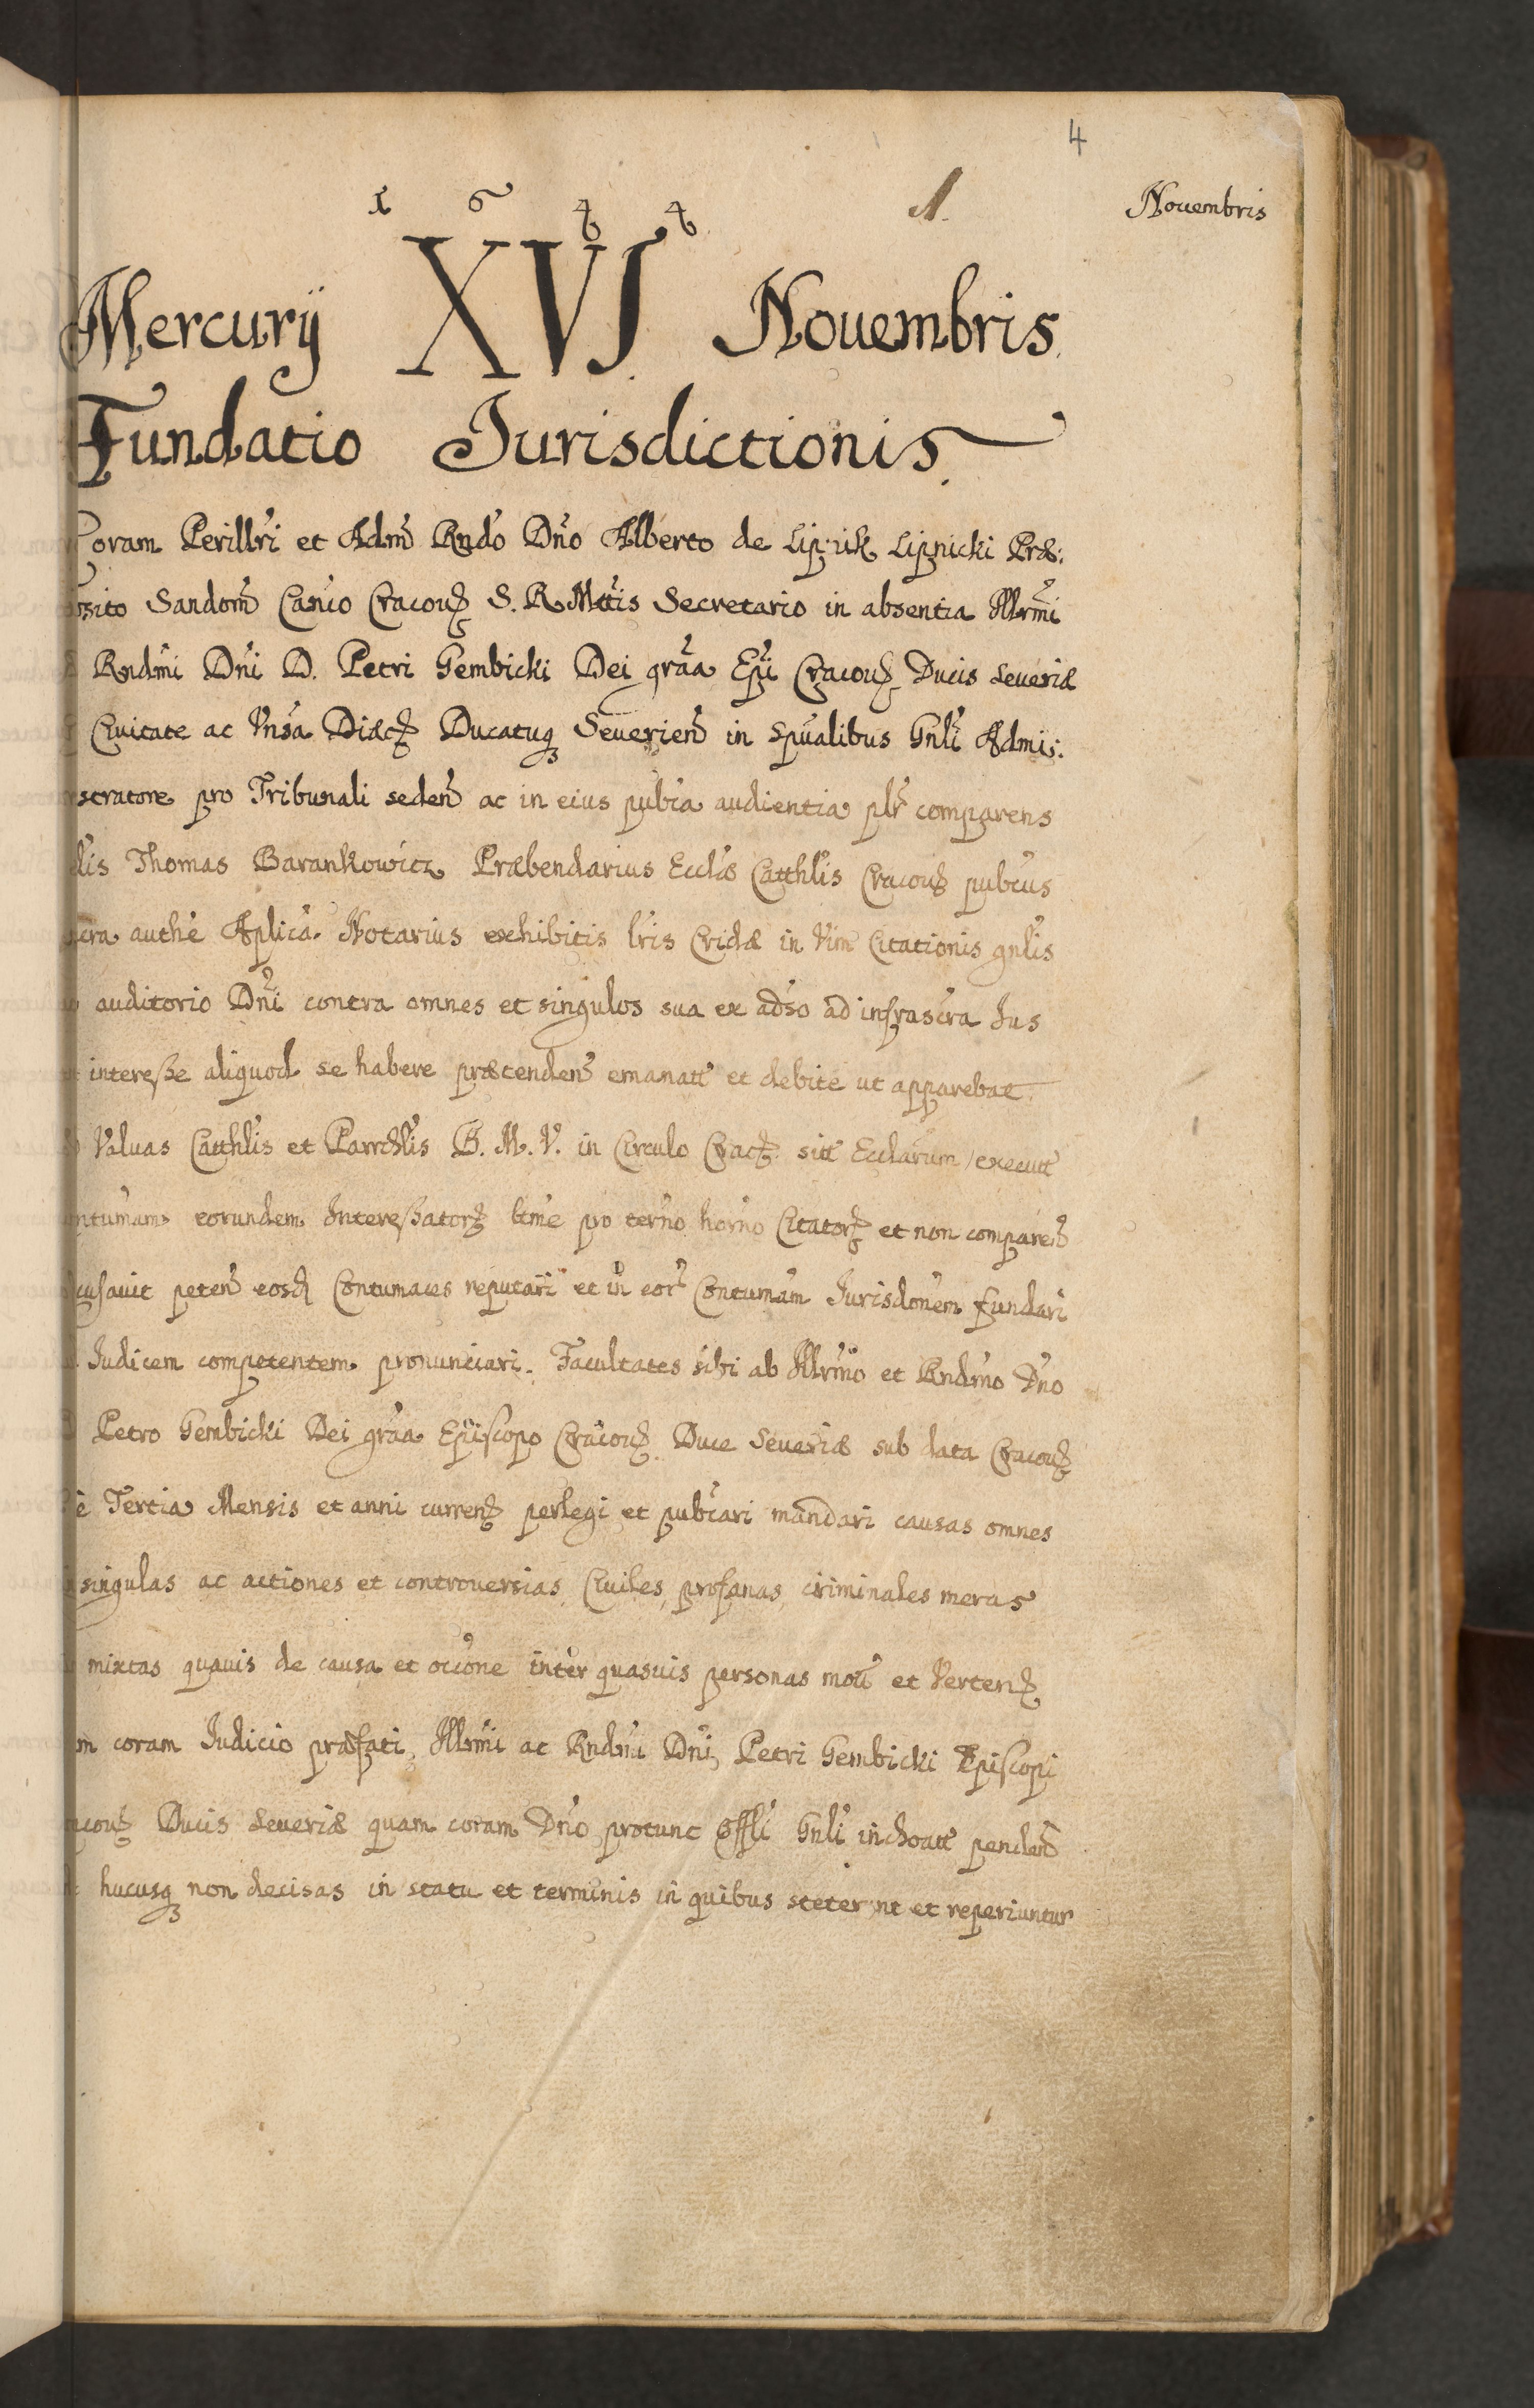 4
1644
1.
Novembris
Mercurÿ XVI Novembris.
Fundatio Jurisdictionis.
Coram Perillri et Adm Rndo Dno Alberto de Lipnik Lipnicki Præ:
Sandom Canco Cracou S. R. Mttis Secretario in absentia Illrmi
Rndmi Dni D. Petri Gembicki Dei graa Epi Cracou Ducis Seueriæ
Ciuitate ac Vnsa Diæc Ducatuq Seuerien in spualibus Gnli Admi:
stratore pro Tribunali seden ac in eius pubca audientia plr comparens
Thomas Barankowicz Præbendarius Ecclæ Catthlis Cracou pubcus
authe Aplica. Notarius exhibitis lris Cridæ in Vim Citationis gnlis
auditorio Dni contra omnes et singulos sua ex adso ad infrascra Jus
interesse aliquod se habere prætenden emanatt et debite ut apparebat
Valuas Catthlis et Parrchlis B. M. V. in Circulo Crac sitt Ecclarum execut
eorundem Interessator ltme pro terno horno Citator et non comparen
peten eosd Contumaces reputari et in eor Contumam Jurisdonem fundari
Judicem competentem pronunciari. Facultates sibi ab Illrmo et Rndmo Dno
Petro Gembicki Dei graa Episcopo Cracou Duce Seueriæ sub data Cracou
Tertia Mensis et anni curren perlegi et pubcari mandari causas omnes
singulas ac actiones et controuersias Ciuiles, profanas, criminales meras
mixtas quauis de causa et occone inter quasuis personas mou et Verten
coram Judicio præfati Illrmi ac Rndmi Dni Petri Gembicki Episcopi
Ducis Seueriæ quam coram Dno protunc Offli Gnli inchoatt penden
hucusq non decisas in statu et terminis in quibus steterunt et reperiuntur